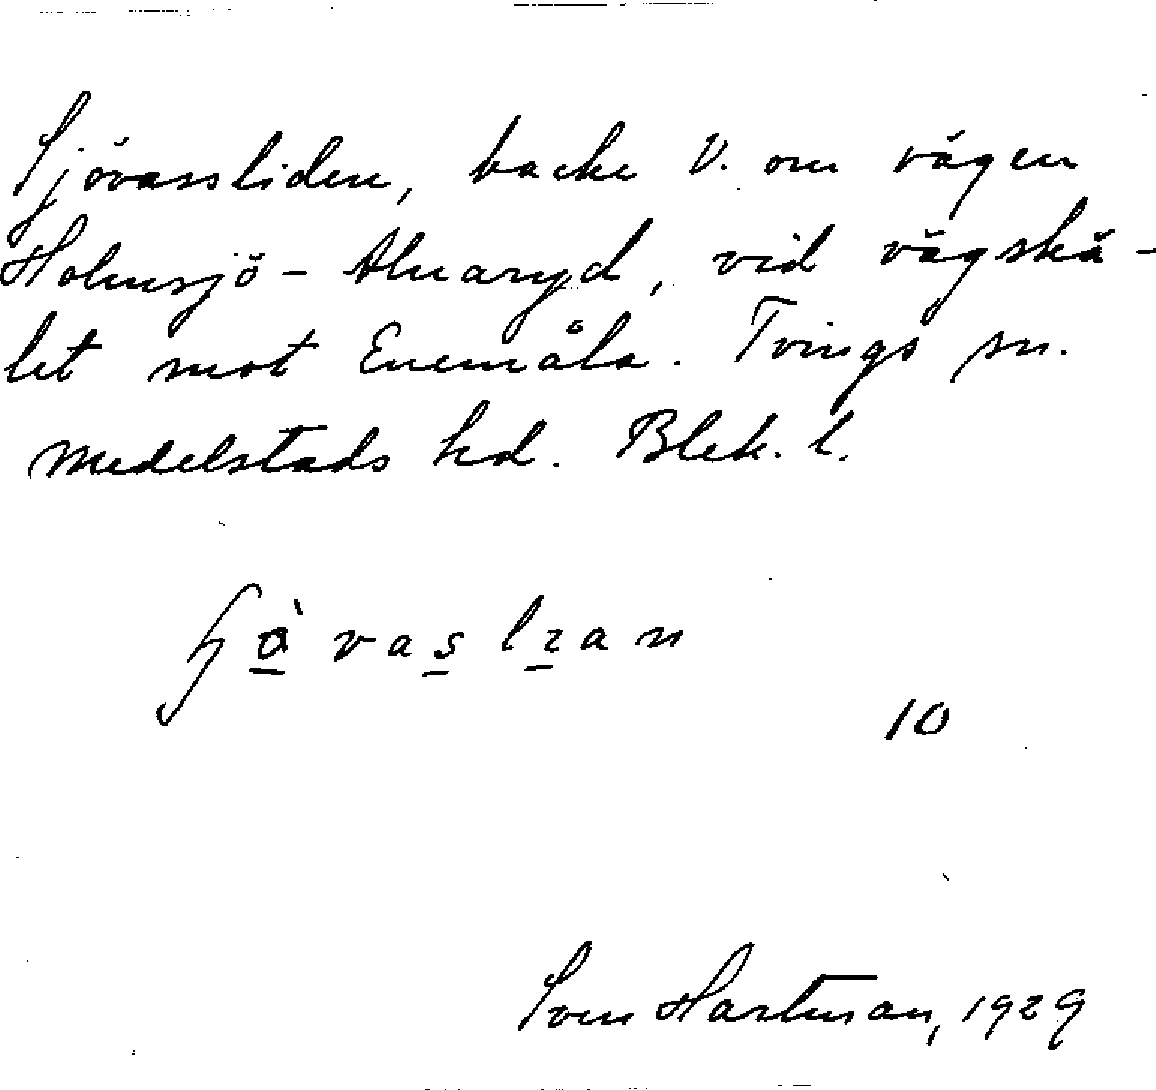 Sjövassliden, backe V. om vägen
Holmsjö - Alnaryd, vid vägskä-
let mot Enemåla. Tvings sn.
Medelstads hd. Blek. l.
10
Sven Hartman, 1929